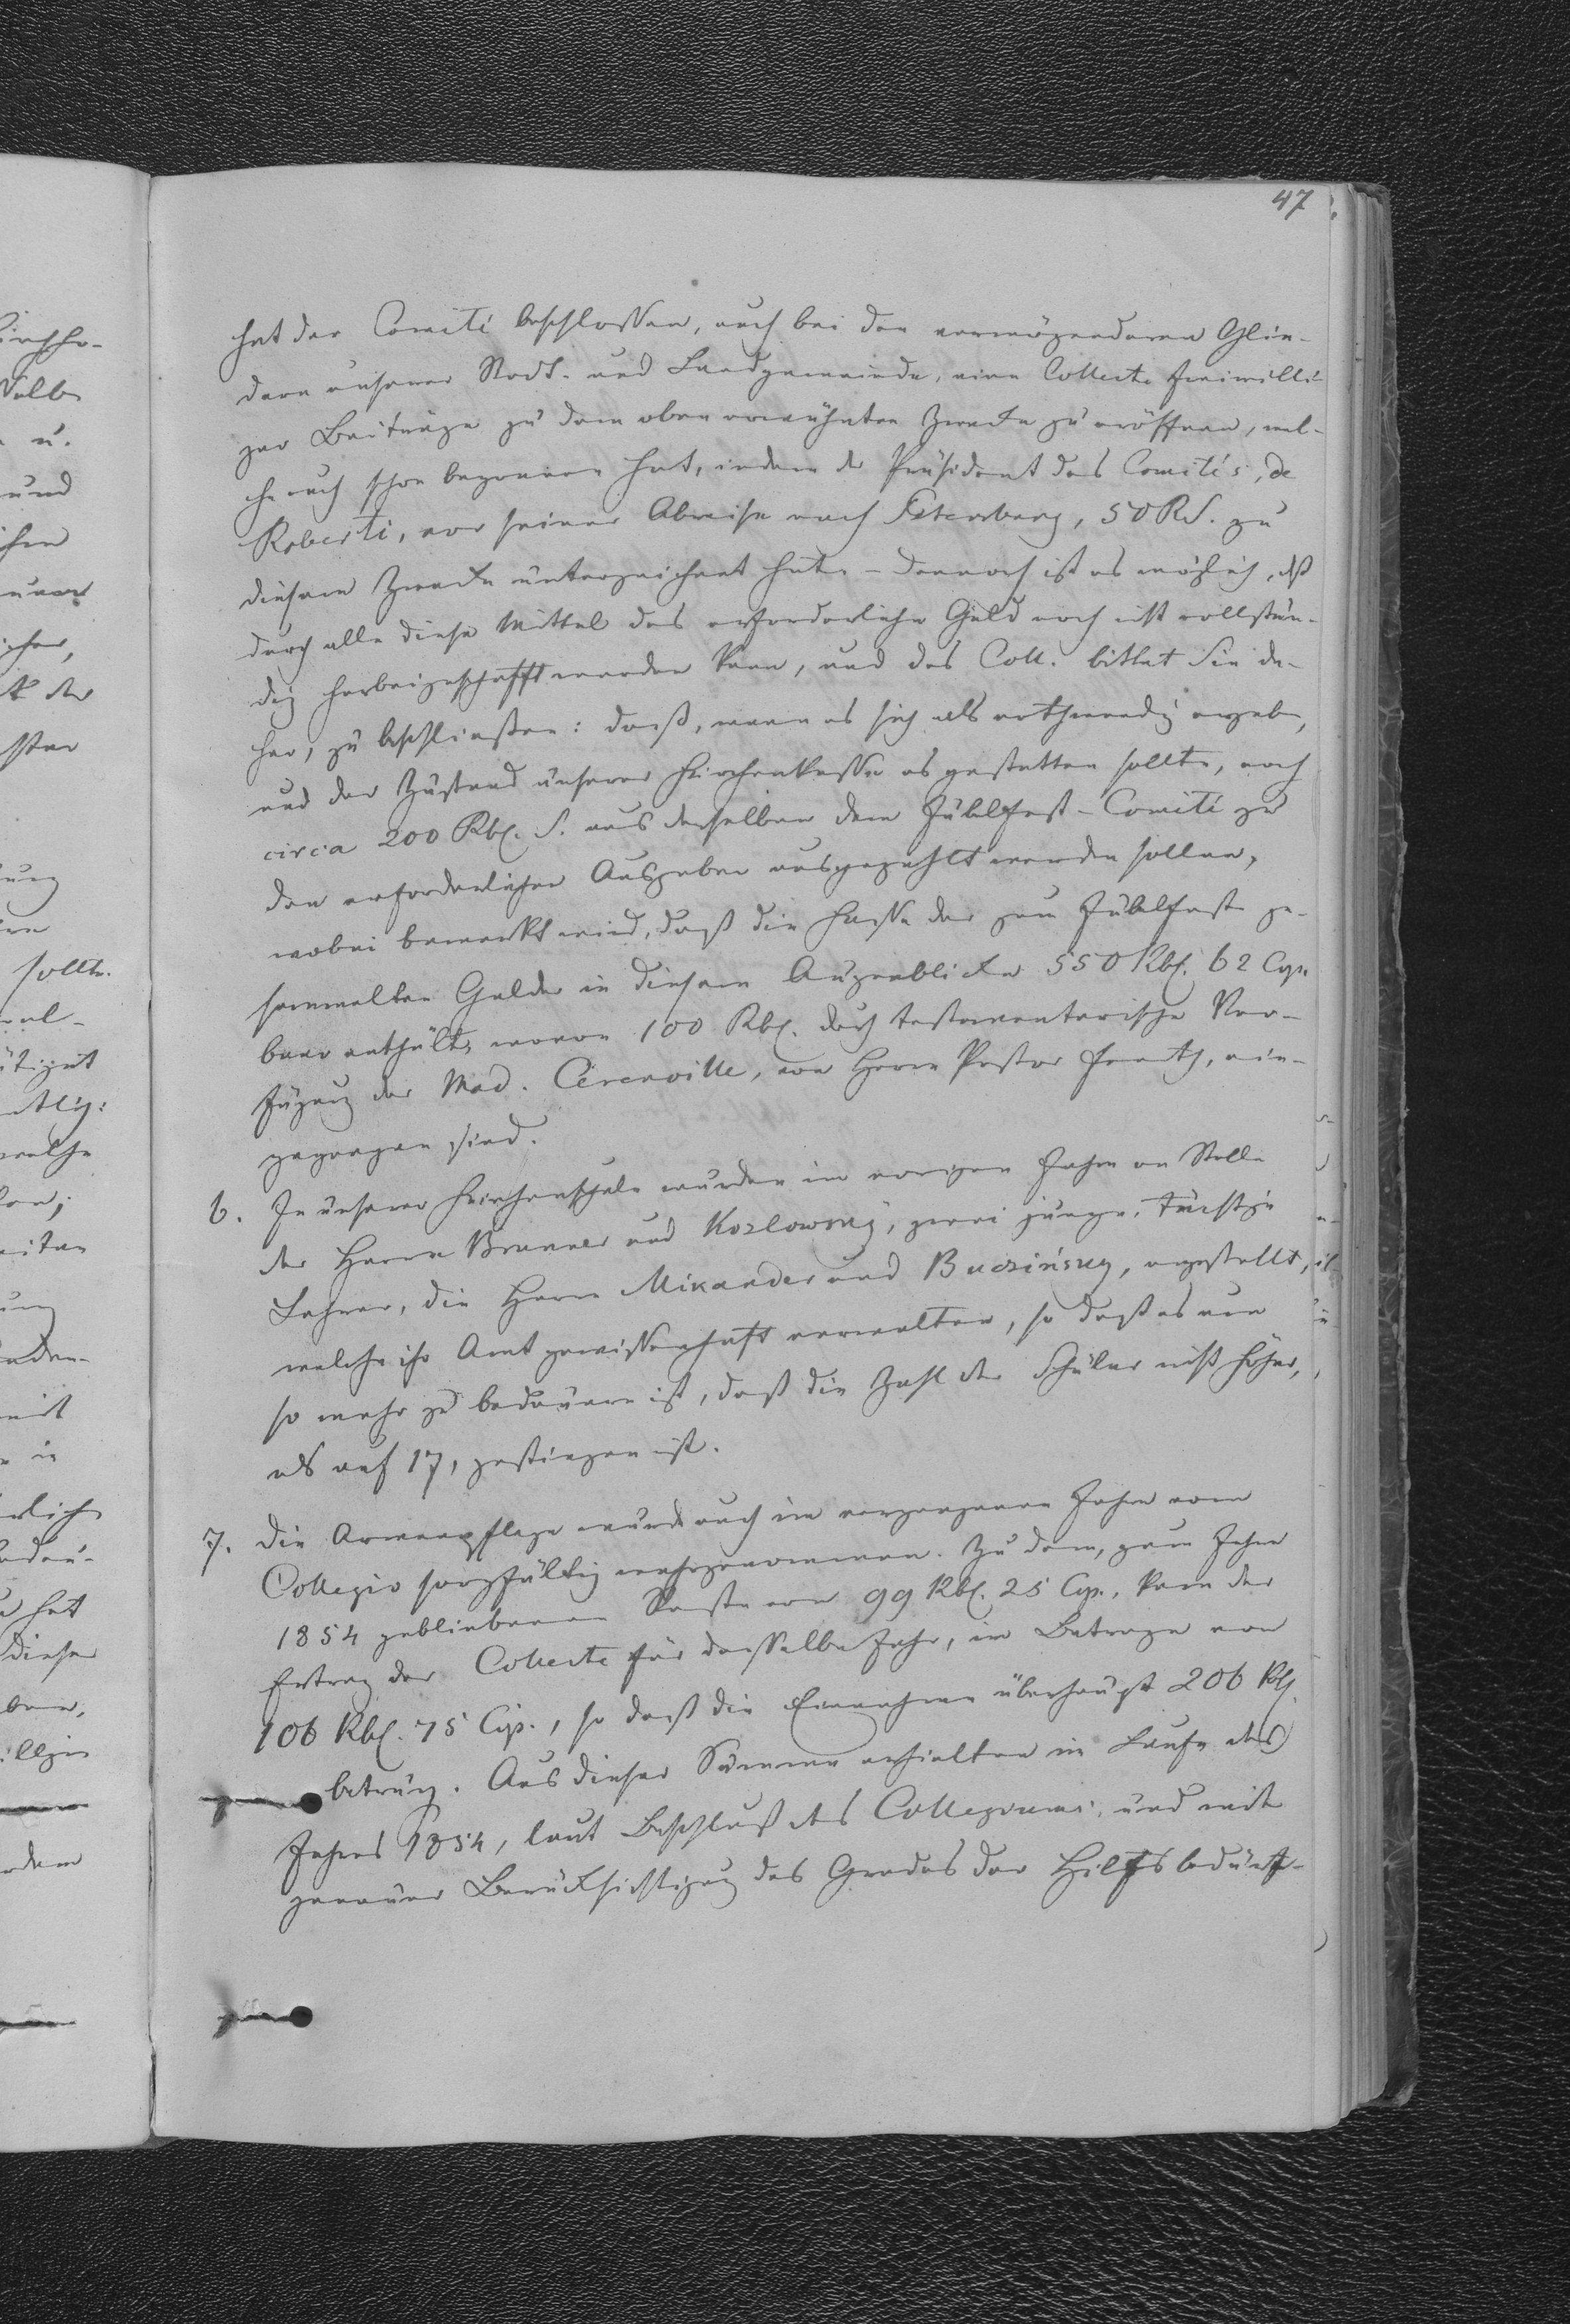 47
hat der Comité beschlossen, auch bei den vermögenderen Glie-
dern unserer Stadt- und Landgemeinde, eine Collecte freiwilli-
ger Beiträge zu dem oben erwähnten Zwecke zu eröffnen, wel-
che auch schon begonnen hat, indem der Präsident des Comités, de
Roberti, vor seiner Abreise nach Petersburg, 50 R.S. zu
diesem Zwecke unterzeichnet hat. – Dennoch ist es möglich, daß
durch alle diese Mittel das erforderliche Geld noch nicht vollstän-
dig herbeigeschafft werden kann, und das Coll. bittet Sie da-
her, zu beschließen: daß, wenn es sich als nothwendig ergebe,
und der Zustand unserer Kirchenkasse es gestatten sollte, noch
circa 200 Rbl. S. aus derselben dem Jubelfest-Comité zu
den erforderlichen Ausgaben ausgezahlt werden sollen,
wobei bemerkt wird, daß die Kasse der zum Jubelfeste ge-
sammelten Gelder in diesem Augenblicke 550 Rbl. 62 Cop.
baar enthält, wovon 100 Rbl. durch testamentarische Ver-
fügung der Mad. Cerenville, von Herrn Pastor, ein-
gegangen sind.
6. In unserer Kirchenschule wurden im vorigen Jahre an Stelle
der Herren Brunner und Kozlowsky, zwei junge, tüchtige
Lehrer, die Herren Mikander und Buczińsky, angestellt,
welche ihr Amt gewissenhaft verwalten, so daß es um
so mehr zu bedauern ist, daß die Zahl der Schüler nicht höher,
als auf 17, gestiegen ist.
7. Die Armenpflege wurde auch im vergangenen Jahre vom
Collegio sorgfältig wahrgenommen. Zu dem, zum Jahre
1854 gebliebenen Reste von 99 Rbl. 25 Cop., kam der
Ertrag der Collecte für dasselbe Jahr, im Betrage von
106 Rbl. 75 Cop., so daß die Einnahme überhaupt 206 Rbl.
betrug. Aus dieser Summe erhielten im Laufe des
Jahres 1854, laut Beschluß des Collegiums, und mit
genauer Berücksichtigung des Grades der Hilfsbedürf-